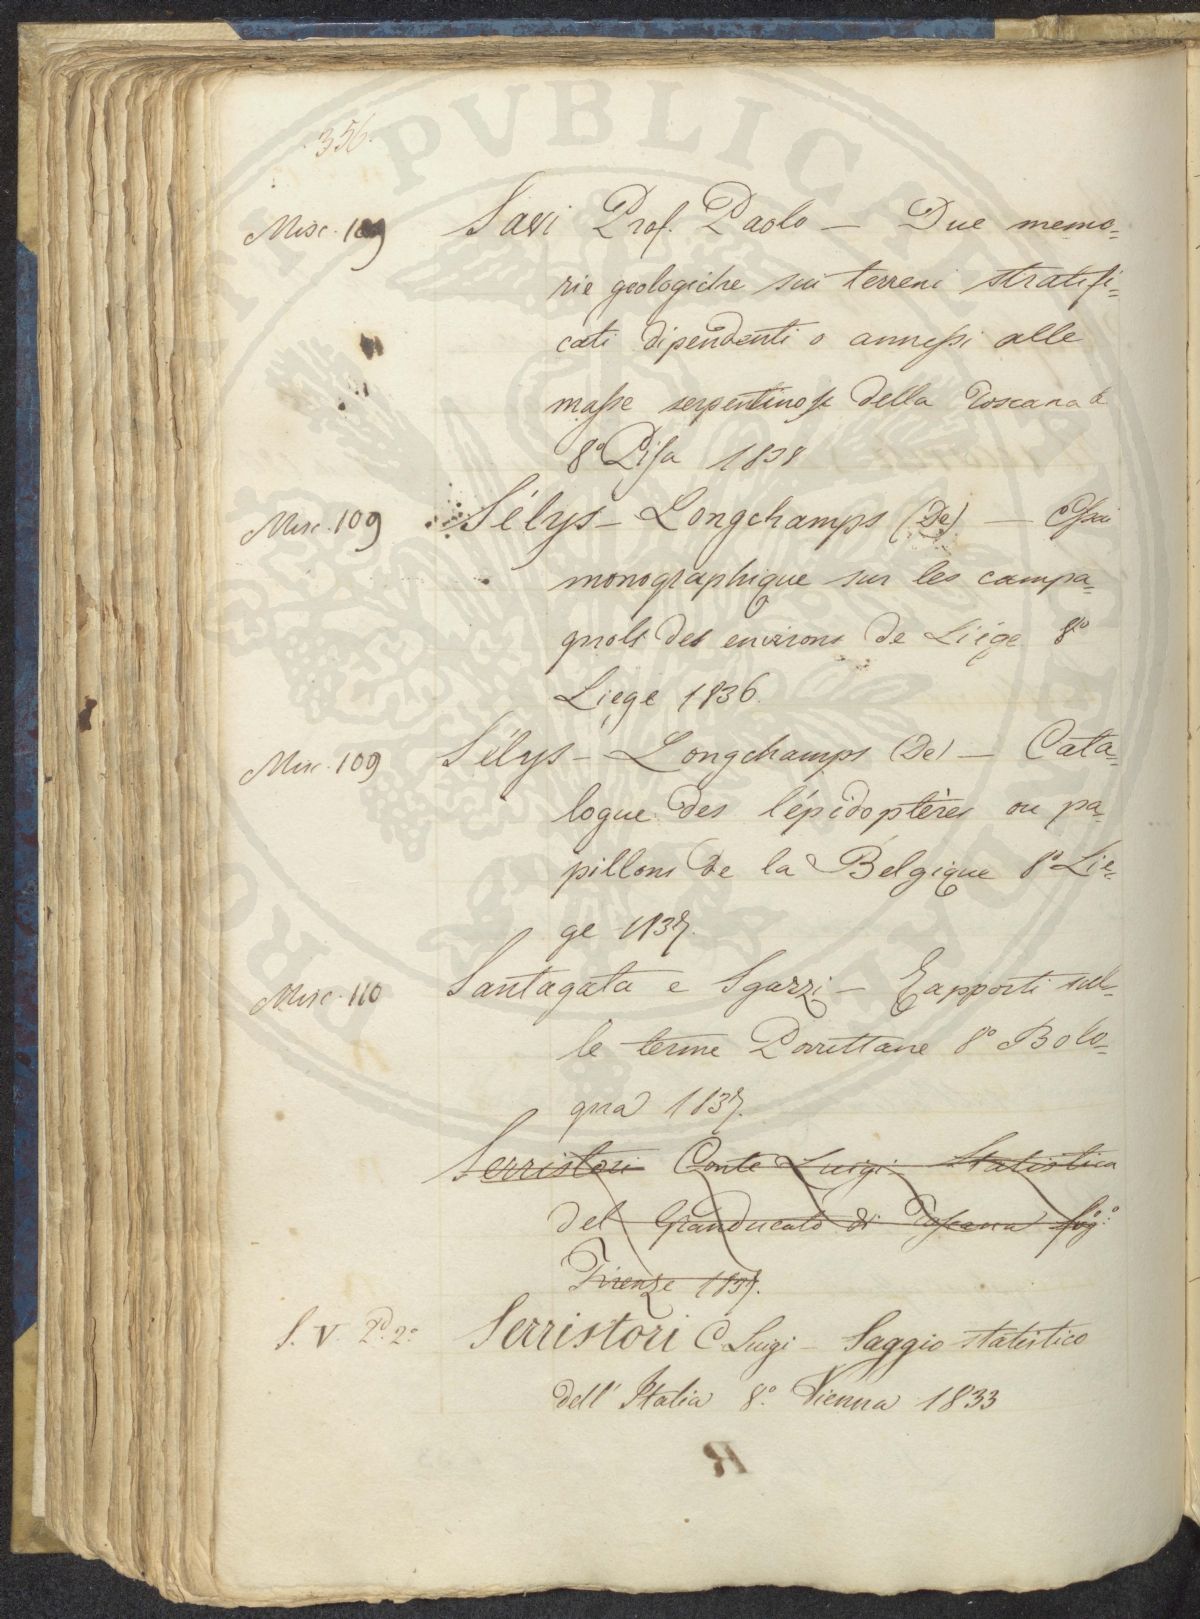 356.
Misc. 109 Savi Prof. Paolo — Due memo=
rie geologiche sui terreni stratifi=
cati dipendenti o annessi alle
masse serpentinose della Toscana
8° Pisa 1838
Misc. 109 Sélys-Longchamps (De) —
monographique sur les campa=
gnols des environs de Liége 8°
Liege 1836.
Misc. 109 Sélys-Longchamps (De) — Cata=
logue des lépidoptères ou pa=
pillons de la Belgique 8° Lie=
ge 1837.
Misc. 110 Santagata e Sgarzi — Rapporti sul=
le terme Porrettane 8° Bolo=
gna 1837.
Serristori Conte Luigi - Statistica
del Granducato di Toscana fog.°
Firenze 1837.
S. V. P.° 2.° Serristori C. Luigi - Saggio statistico
dell'Italia 8.° Vienna 1833